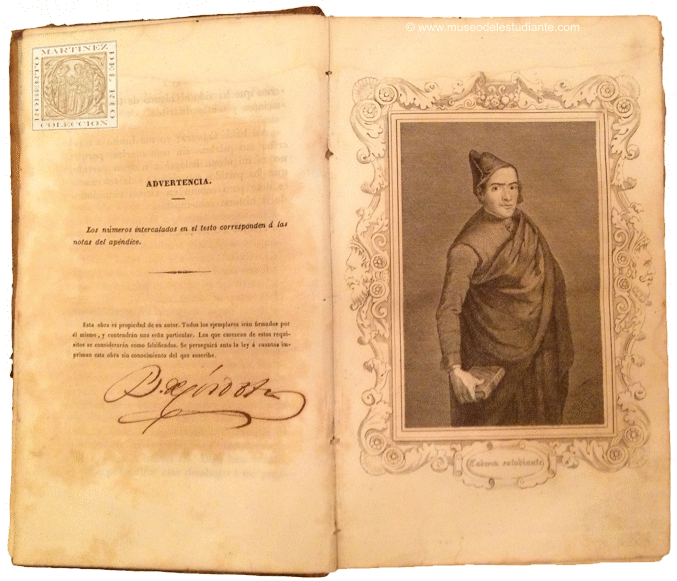 © www.museodelestudiante.com
ROBERTO MARTINEZ DEL RIO
COLECCION
ADVERTENCIA.
Los números intercalados en el testo corresponden á las
notas del apéndice.
Esta obra es propiedad de su autor. Todos los ejemplares irán firmados por
él mismo, y contendrán una seña particular. Los que carezcan de estos requi-
sitos se considerarán como falsificados. Se perseguirá ante la ley á cuantos im-
priman esta obra sin conocimiento del que suscribe.
Cabeza estudiante